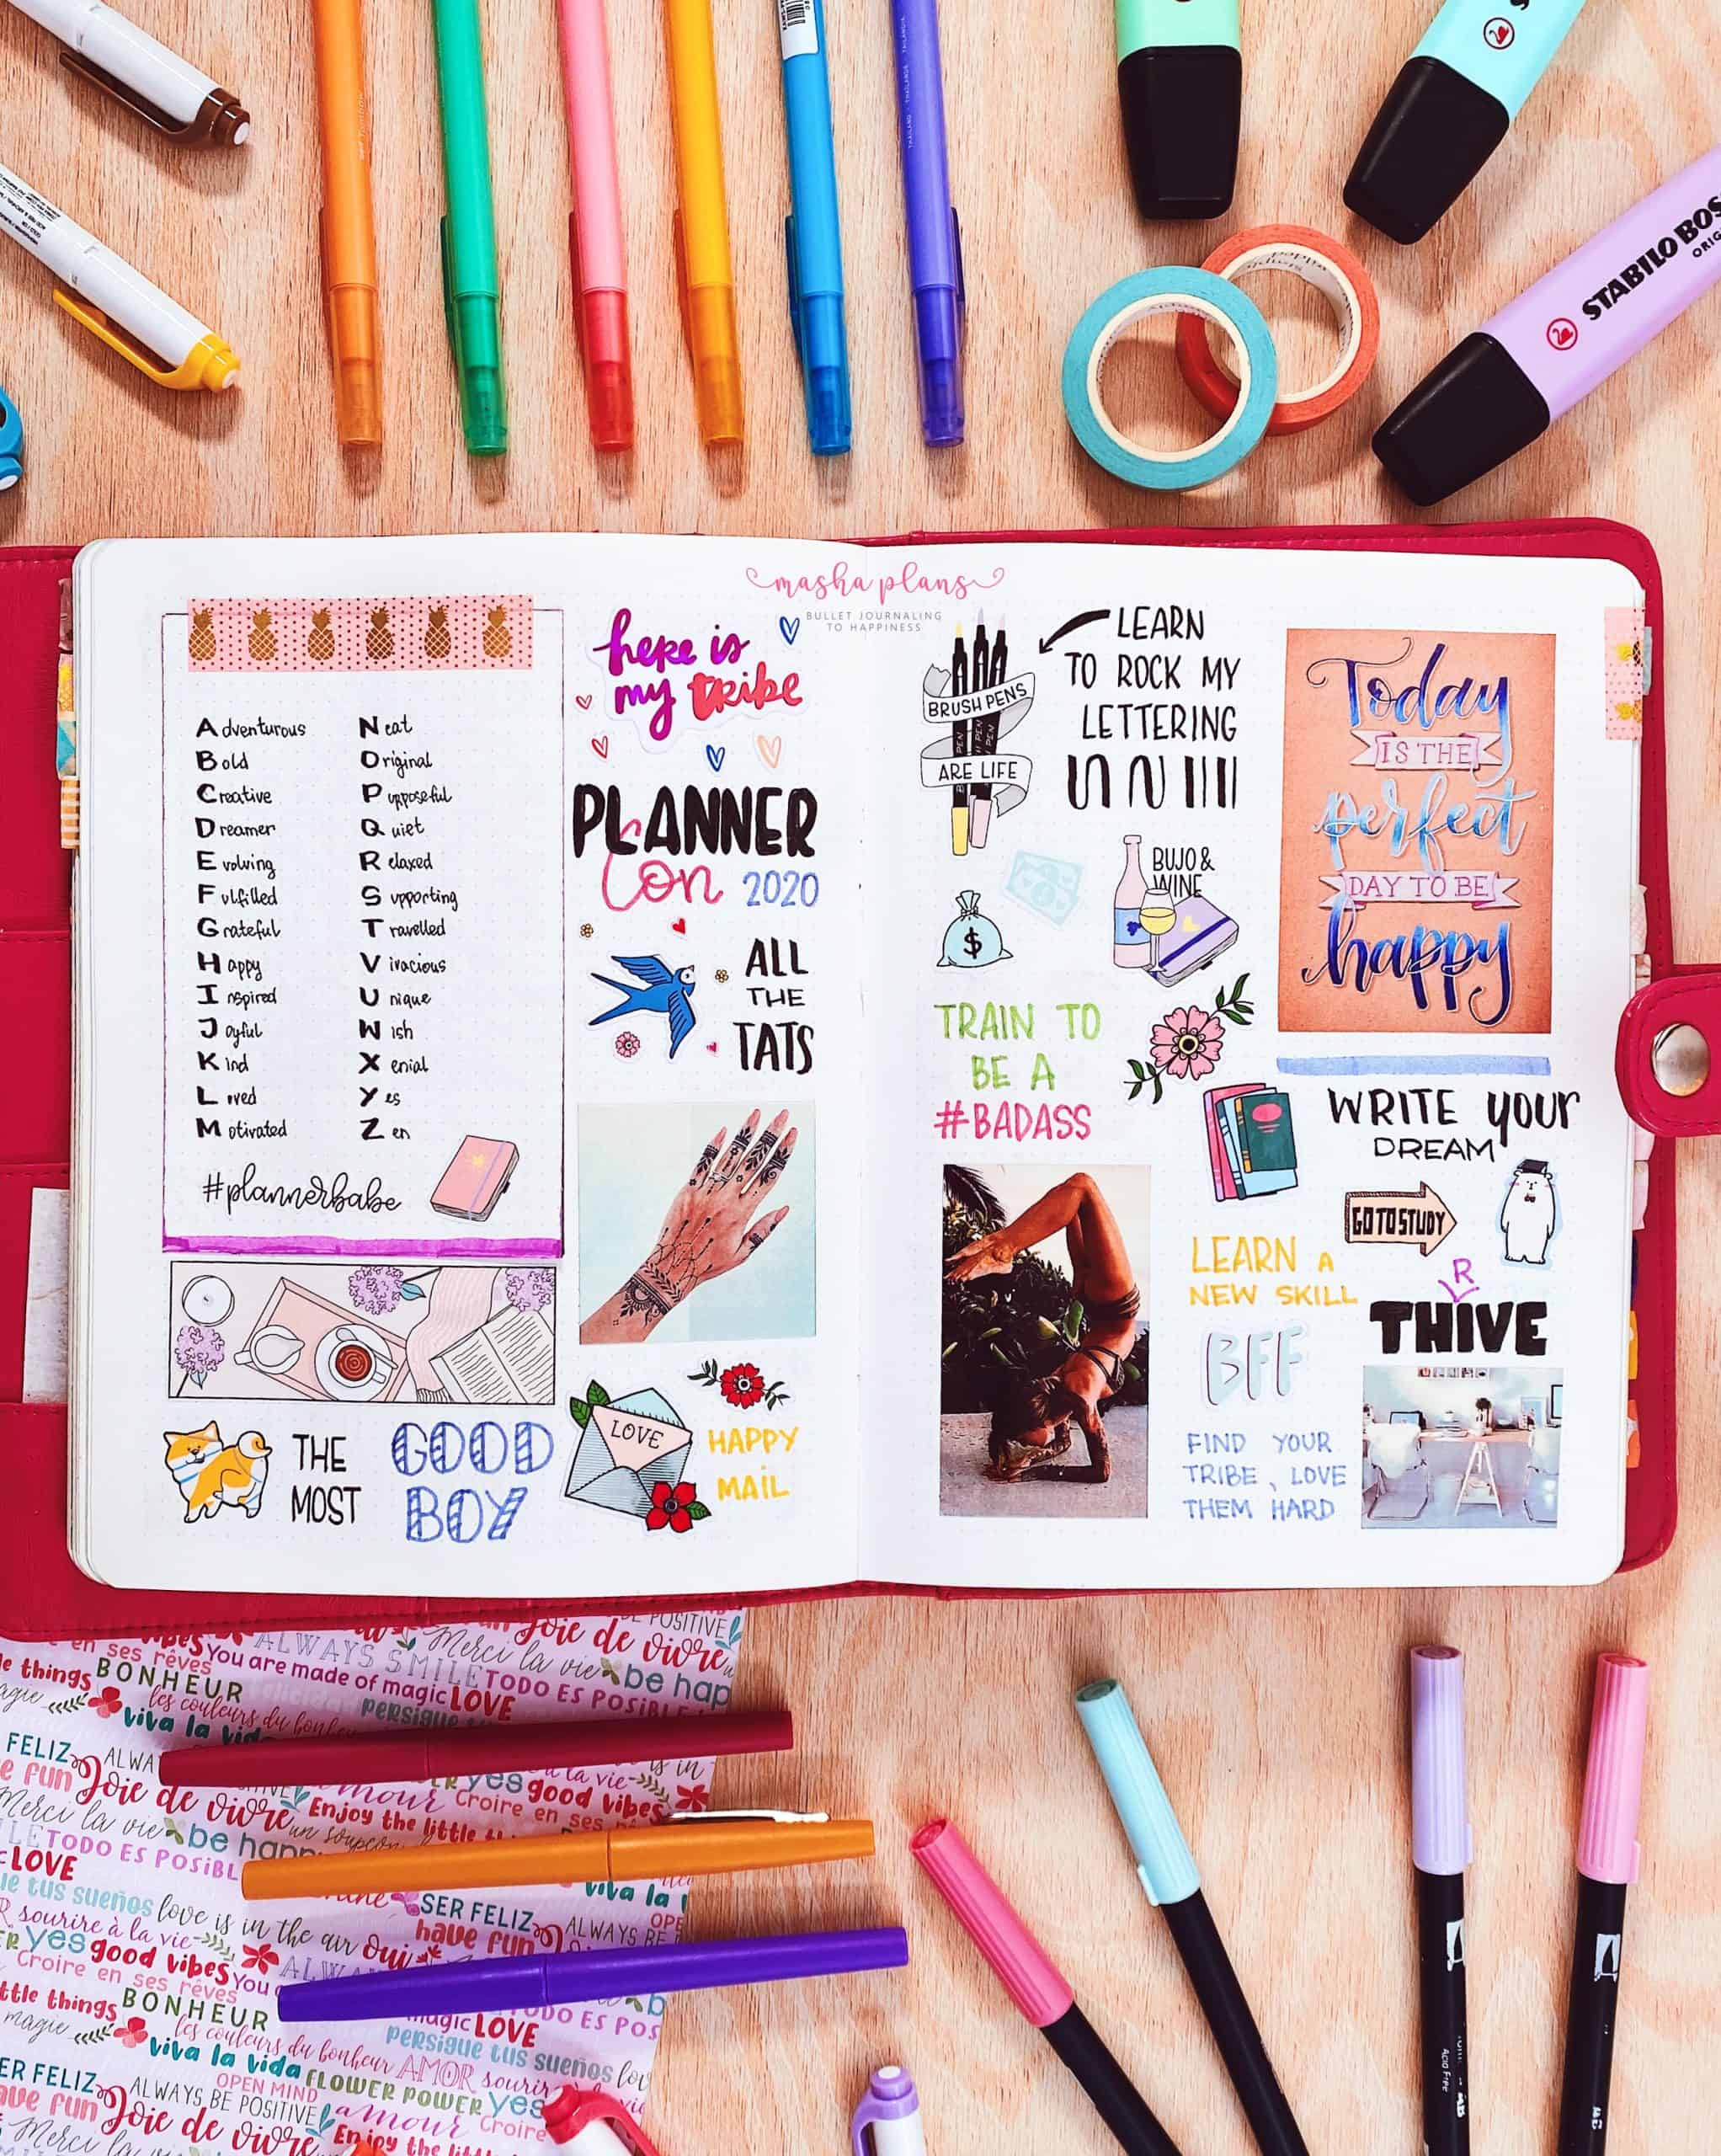 STABILO BOS
ORIG
masha plans
BULLET JOURNALING
TO HAPPINESS
Adventurous
Bold
Creative
Dreamer
Evolving
Fulfilled
Grateful
Happy
Inspired
Joyful
Kind
Loved
Motivated
Neat
Original
Purposeful
Quiet
Relaxed
Supporting
Travelled
Vivacious
Unique
Wish
Xenial
Yes
Zen
#plannerbabe
here is
my tribe
PLANNER
Con 2020
ALL
THE
TATS
THE
MOST
GOOD
BOY
LOVE
HAPPY
MAIL
BRUSH PENS
ARE LIFE
LEARN
TO ROCK MY
LETTERING
BUJO &
WINE
$
TRAIN TO
BE A
#BADASS
Today
IS THE
perfect
DAY TO BE
happy
WRITE your
DREAM
GO TO STUDY
LEARN A
NEW SKILL
BFF
R
THIVE
FIND YOUR
TRIBE, LOVE
THEM HARD
POSITIVE
Joie de vivre
en ses rêves
ALWAYS SMILE
Merci la vie
be hap
things BONHEUR
You are made of magic LOVE
TODO ES POSIBLE
les couleurs du
persigue
viva la vida
FELIZ
ALWA
is in
fun Joie de vivre
amour
yes good vibes
Enjoy the little
Croire en ses
Merci la vie
be happ
un soupçon
TODO ES POSIBL
LOVE
viva la
tus sueños love is in the air oui
SER FELIZ
ALWAYS BE
sourire à la vie
have fun
OPE
yes good vibes You
ALWA
Croire en ses rêves
ttle things BONHEUR
magic LOVE
TODO ES POS
magie
les couleurs du bonheur
persigue tus sueños lov
viva la vida
AMOR
sourir
OPEN MIND
FLOWER POWER yes
ER FELIZ
ALWAYS BE POSITIVE
amour
Croire
fun Joie de vivre
Enjoy the littl
Merci la vi